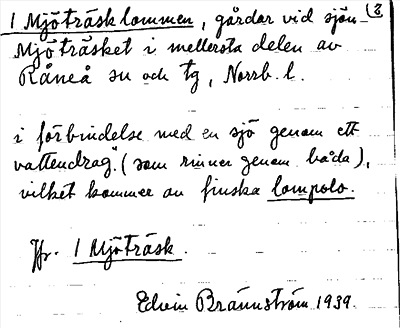 1 Mjöträsklommen, gårdar vid sjön (8
Mjöträsket i mellersta delen av
Råneå sn och tg, Norrb. l.
i förbindelse med en sjö genom ett
vattendrag". (som rinner genom båda),
vilket kommer av finska lompolo.
Jfr. 1 Mjöträsk.
Edvin Brännström 1939.